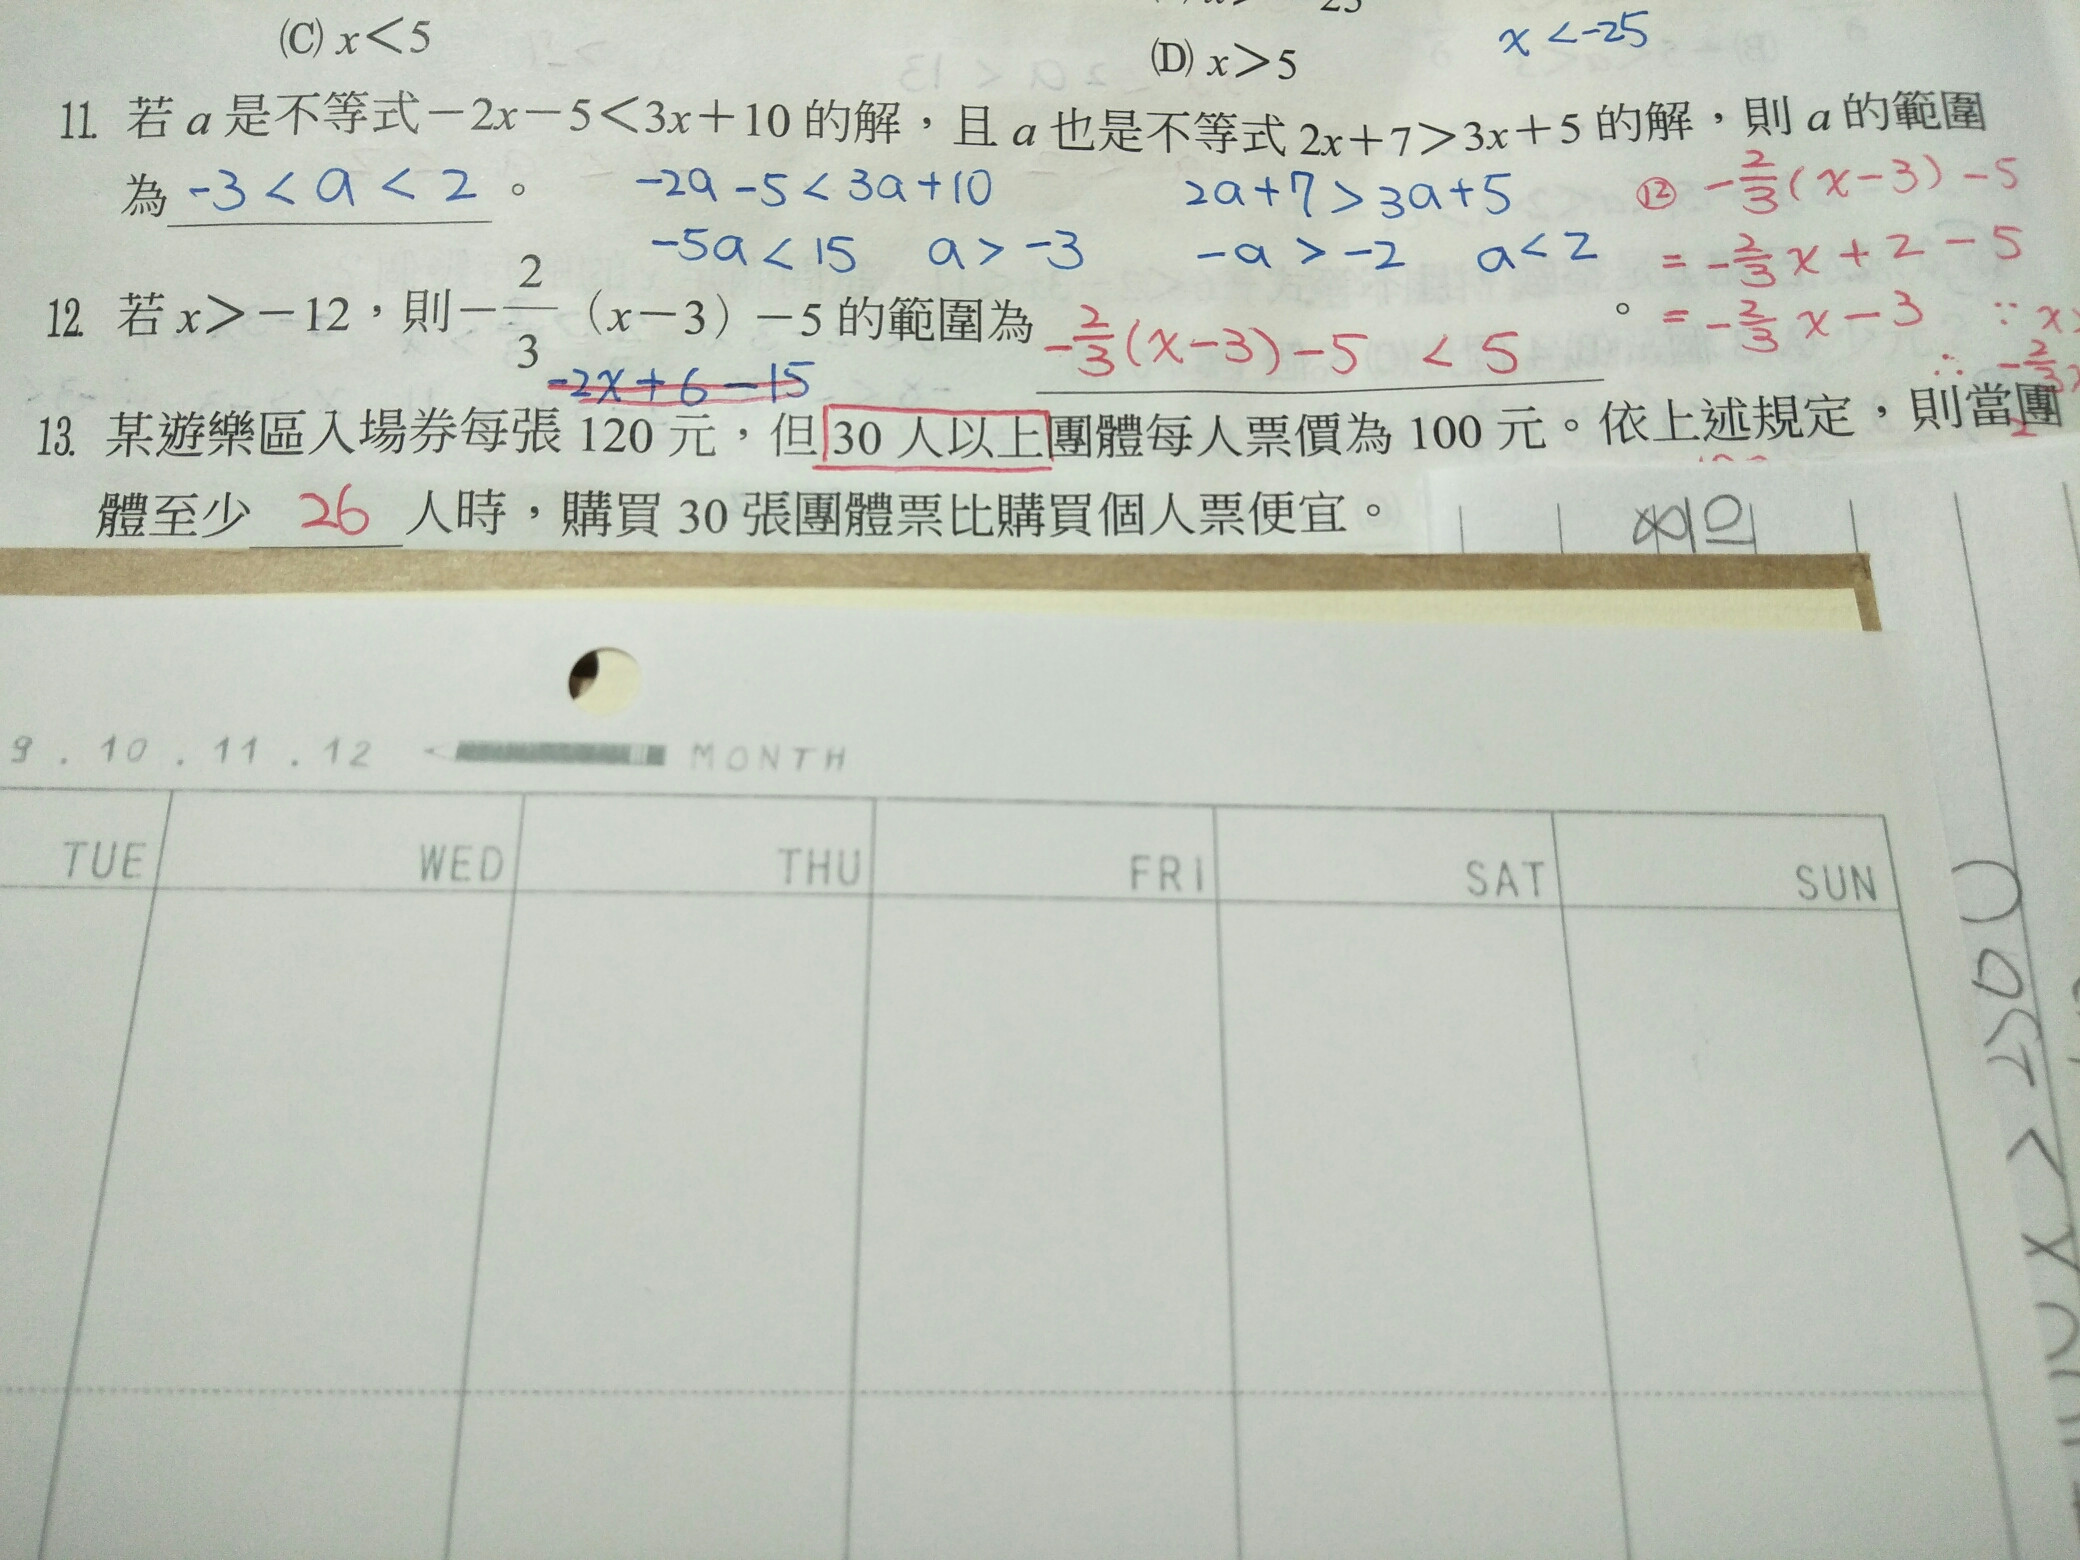 (C) x<5
(D) x>5
x<-25
11. 若 a 是不等式－2x－5<3x＋10 的解，且 a 也是不等式 2x＋7>3x＋5 的解，則 a 的範圍
為 -3<a<2 。
-2a-5<3a+10
2a+7>3a+5
-5a<15 a>-3
-a>-2 a<2
⑫ -2/3(x-3)-5
= -2/3x+2-5
= -2/3x-3 ∵x>
∴ -2/3x
12. 若 x>－12，則－2/3（x－3）－5 的範圍為 -2/3(x-3)-5<5 。
-2x+6-15
13. 某遊樂區入場券每張 120 元，但 30 人以上團體每人票價為 100 元。依上述規定，則當團
體至少 26 人時，購買 30 張團體票比購買個人票便宜。
9 . 10 . 11 . 12 MONTH
TUE WED THU FRI SAT SUN